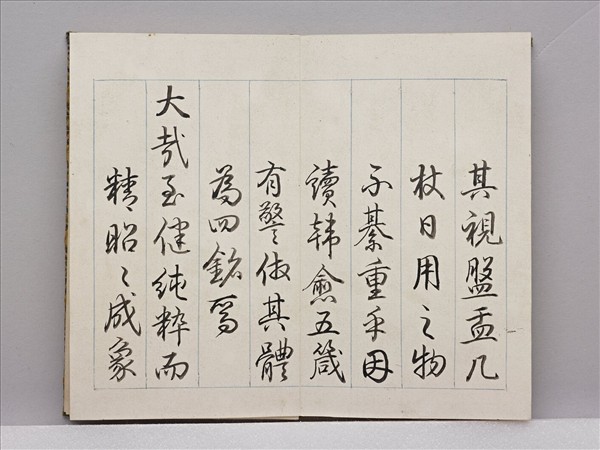 其視盤盂几
杖日用之物
不綦重乎因
讀韓愈五箴
有警倣其體
為四銘焉
大哉至健純粹而
精昭〻成象